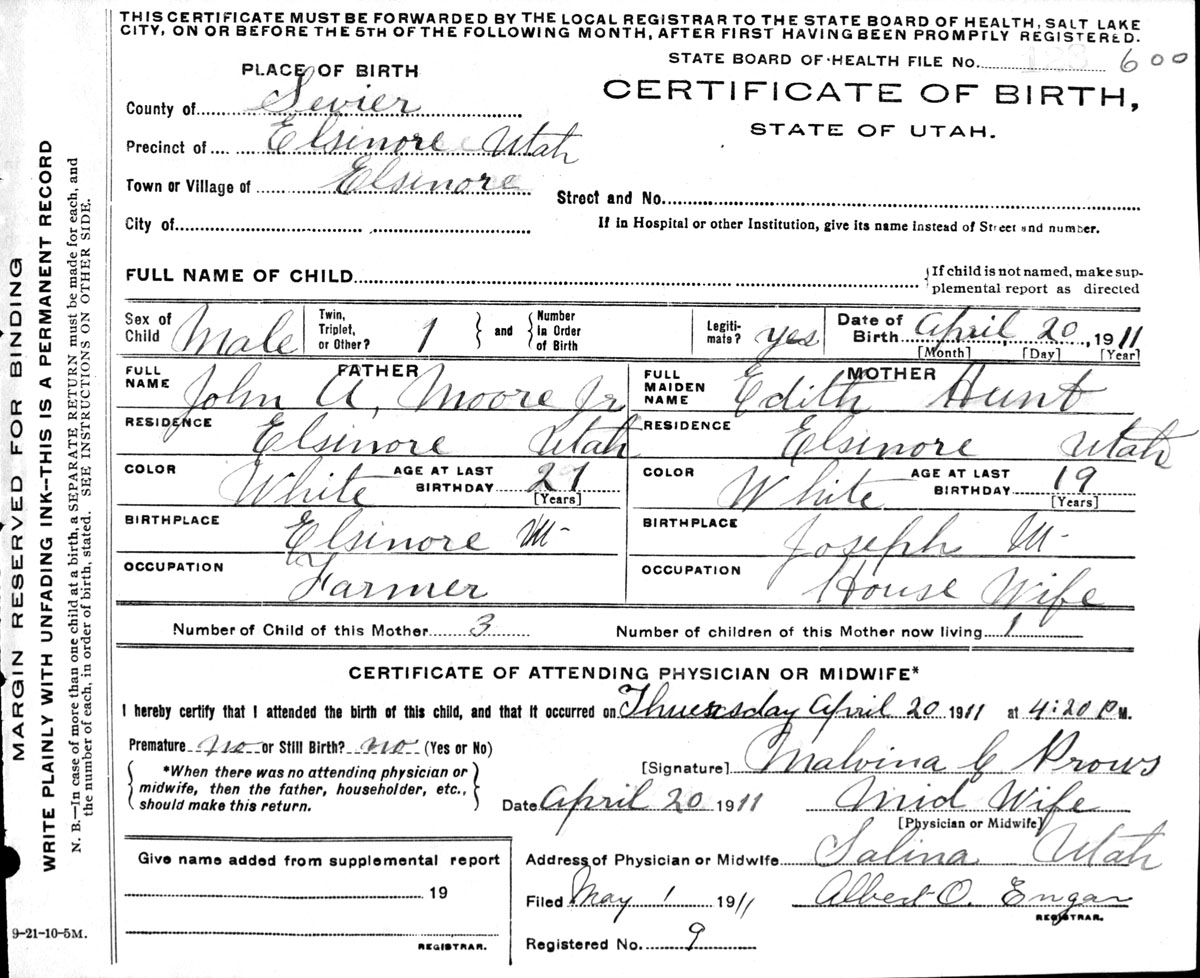 THIS CERTIFICATE MUST BE FORWARDED BY THE LOCAL REGISTRAR TO THE STATE BOARD OF HEALTH, SALT LAKE
CITY, ON OR BEFORE THE 5TH OF THE FOLLOWING MONTH, AFTER FIRST HAVING BEEN PROMPTLY REGISTERED.
STATE BOARD OF HEALTH FILE No. 600
PLACE OF BIRTH
CERTIFICATE OF BIRTH,
STATE OF UTAH.
County of Sevier
Precinct of Elsinore Utah
Town or Village of Elsinore
Street and No.
City of
If in Hospital or other Institution, give its name instead of Street and number.
FULL NAME OF CHILD
If child is not named, make sup-
plemental report as directed
Sex of Child Male
Twin, Triplet, or Other? 1 and Number in Order of Birth
Legiti- mate? yes
Date of Birth April 20, 1911
[Month] [Day] [Year]
FATHER
FULL NAME John A, Moore Jr
MOTHER
FULL MAIDEN NAME Edith Hunt
RESIDENCE Elsinore Utah
RESIDENCE Elsinore Utah
COLOR White AGE AT LAST BIRTHDAY 27 [Years]
COLOR White AGE AT LAST BIRTHDAY 19 [Years]
BIRTHPLACE Elsinore
BIRTHPLACE Joseph
OCCUPATION Farmer
OCCUPATION House Wife
Number of Child of this Mother 3 Number of children of this Mother now living 1
CERTIFICATE OF ATTENDING PHYSICIAN OR MIDWIFE*
I hereby certify that I attended the birth of this child, and that it occurred on Thuresday April 20 1911 at 4:20 P M.
Premature no or Still Birth? no (Yes or No)
*When there was no attending physician or
midwife, then the father, householder, etc.,
should make this return.
[Signature] Malvina C Prows
Date April 20 1911 Mid Wife
[Physician or Midwife]
Give name added from supplemental report
19
REGISTRAR.
Address of Physician or Midwife Salina Utah
Filed May 1 1911 Albert O. Engar
REGISTRAR.
Registered No. 9
9-21-10-5M.
MARGIN RESERVED FOR BINDING
WRITE PLAINLY WITH UNFADING INK--THIS IS A PERMANENT RECORD
N. B.—In case of more than one child at a birth, a SEPARATE RETURN must be made for each, and
the number of each, in order of birth, stated. SEE INSTRUCTIONS ON OTHER SIDE.